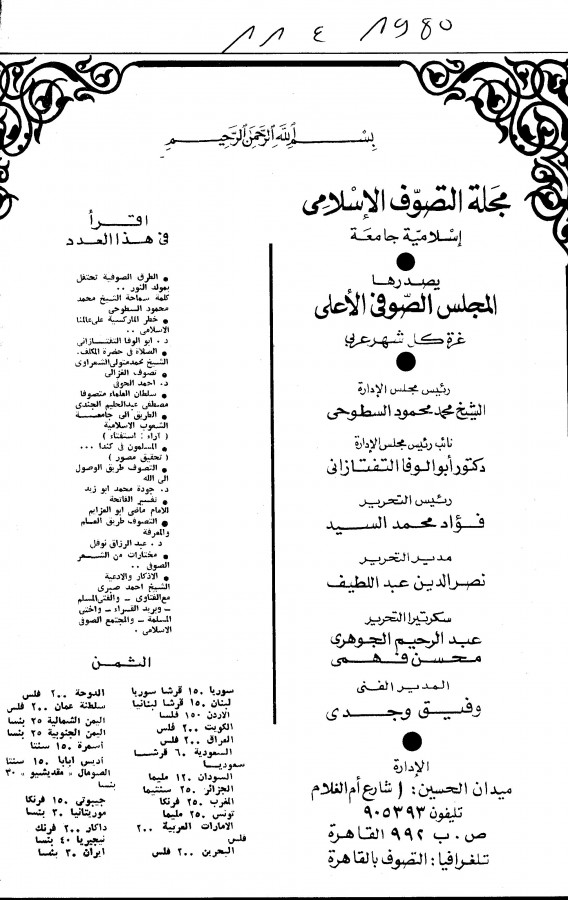 ١١ ٤ ١٩٨٥
بسم الله الرحمن الرحيم
مجلة التصوف الإسلامى
إسلامية جامعة
يصدرها
المجلس الصوفى الأعلى
غرة كل شهر عربى
رئيس مجلس الإدارة
الشيخ محمد محمود السطوحى
نائب رئيس مجلس الإدارة
دكتور أبو الوفا التفتازانى
رئيس التحرير
فؤاد محمد السيد
مدير التحرير
نصر الدين عبد اللطيف
سكرتيرا التحرير
عبد الرحيم الجوهرى
محسن فهمى
المدير الفنى
وفيق وجدى
الإدارة
ميدان الحسين: ١ شارع أم الغلام
تليفون ٩٠٥٣٩٣
ص . ب ٩٩٢ القاهرة
تلغرافيا: التصوف بالقاهرة
اقرأ
فى هذا العدد
● الطرق الصوفية تحتفل
بمولد النور ..
كلمة سماحة الشيخ محمد
محمود السطوحى
● خطر الماركسية على عالمنا
الاسلامى ..
د . ابو الوفا التفتازانى
● الصلاة فى حضرة المكلف.
الشيخ محمد متولى الشعراوى
● تصوف الغزالى
د. احمد الحوفى
● سلطان العلماء متصوفا
مصطفى عبد الحليم الجندى
● الطريق الى جامعة
الشعوب الاسلامية
( آراء : استفتاء )
● المسلمون فى كندا ...
( تحقيق مصور )
● التصوف طريق الوصول
الى الله
د. جودة محمد ابو زيد
● تفسير الفاتحة
الامام ماضى ابو العزايم
● التصوف طريق العلم
والمعرفة
د . عبد الرزاق نوفل
● مختارات من الشعر
الصوفى ..
● الاذكار والادعية
الشيخ احمد صبرى
مع الفتاوى ــ والفتى المسلم
ــ وبريد القراء ــ واختى
المسلمة ــ والمجتمع الصوفى
الاسلامى .
الثمن
سوريا ١٥٠ قرشا سوريا
لبنان ١٥٠ قرشا لبنانيا
الاردن ١٥٠ فلسا
الكويت ٢٠٠ فلس
العراق ٢٠٠ فلس
السعودية ٦٠ قرشا
سعوديا
السودان ١٢٠ مليما
الجزائر ٢٥٠ سنتيما
المغرب ٢٥٠ فرنكا
تونس ٢٥٠ مليما
الامارات العربية ٢٠٠
فلس
البحرين ٢٠٠ فلس
الدوحة ٢٠٠ فلس
سلطنة عمان ٢٠٠ فلس
اليمن الشمالية ٢٥ بنسا
اليمن الجنوبية ٢٥ بنسا
أسمرة ١٥٠ سنتا
أديس ابابا ١٥٠ سنتا
الصومال « مقديشيو » ٣٠
بنسا
جيبوتى ١٥٠ فرنكا
موريتانيا ٣٠ بنسا
داكار ٢٠٠ فرنك
نيجيريا ٤٠ بنسا
ايران ٣٠ بنسا